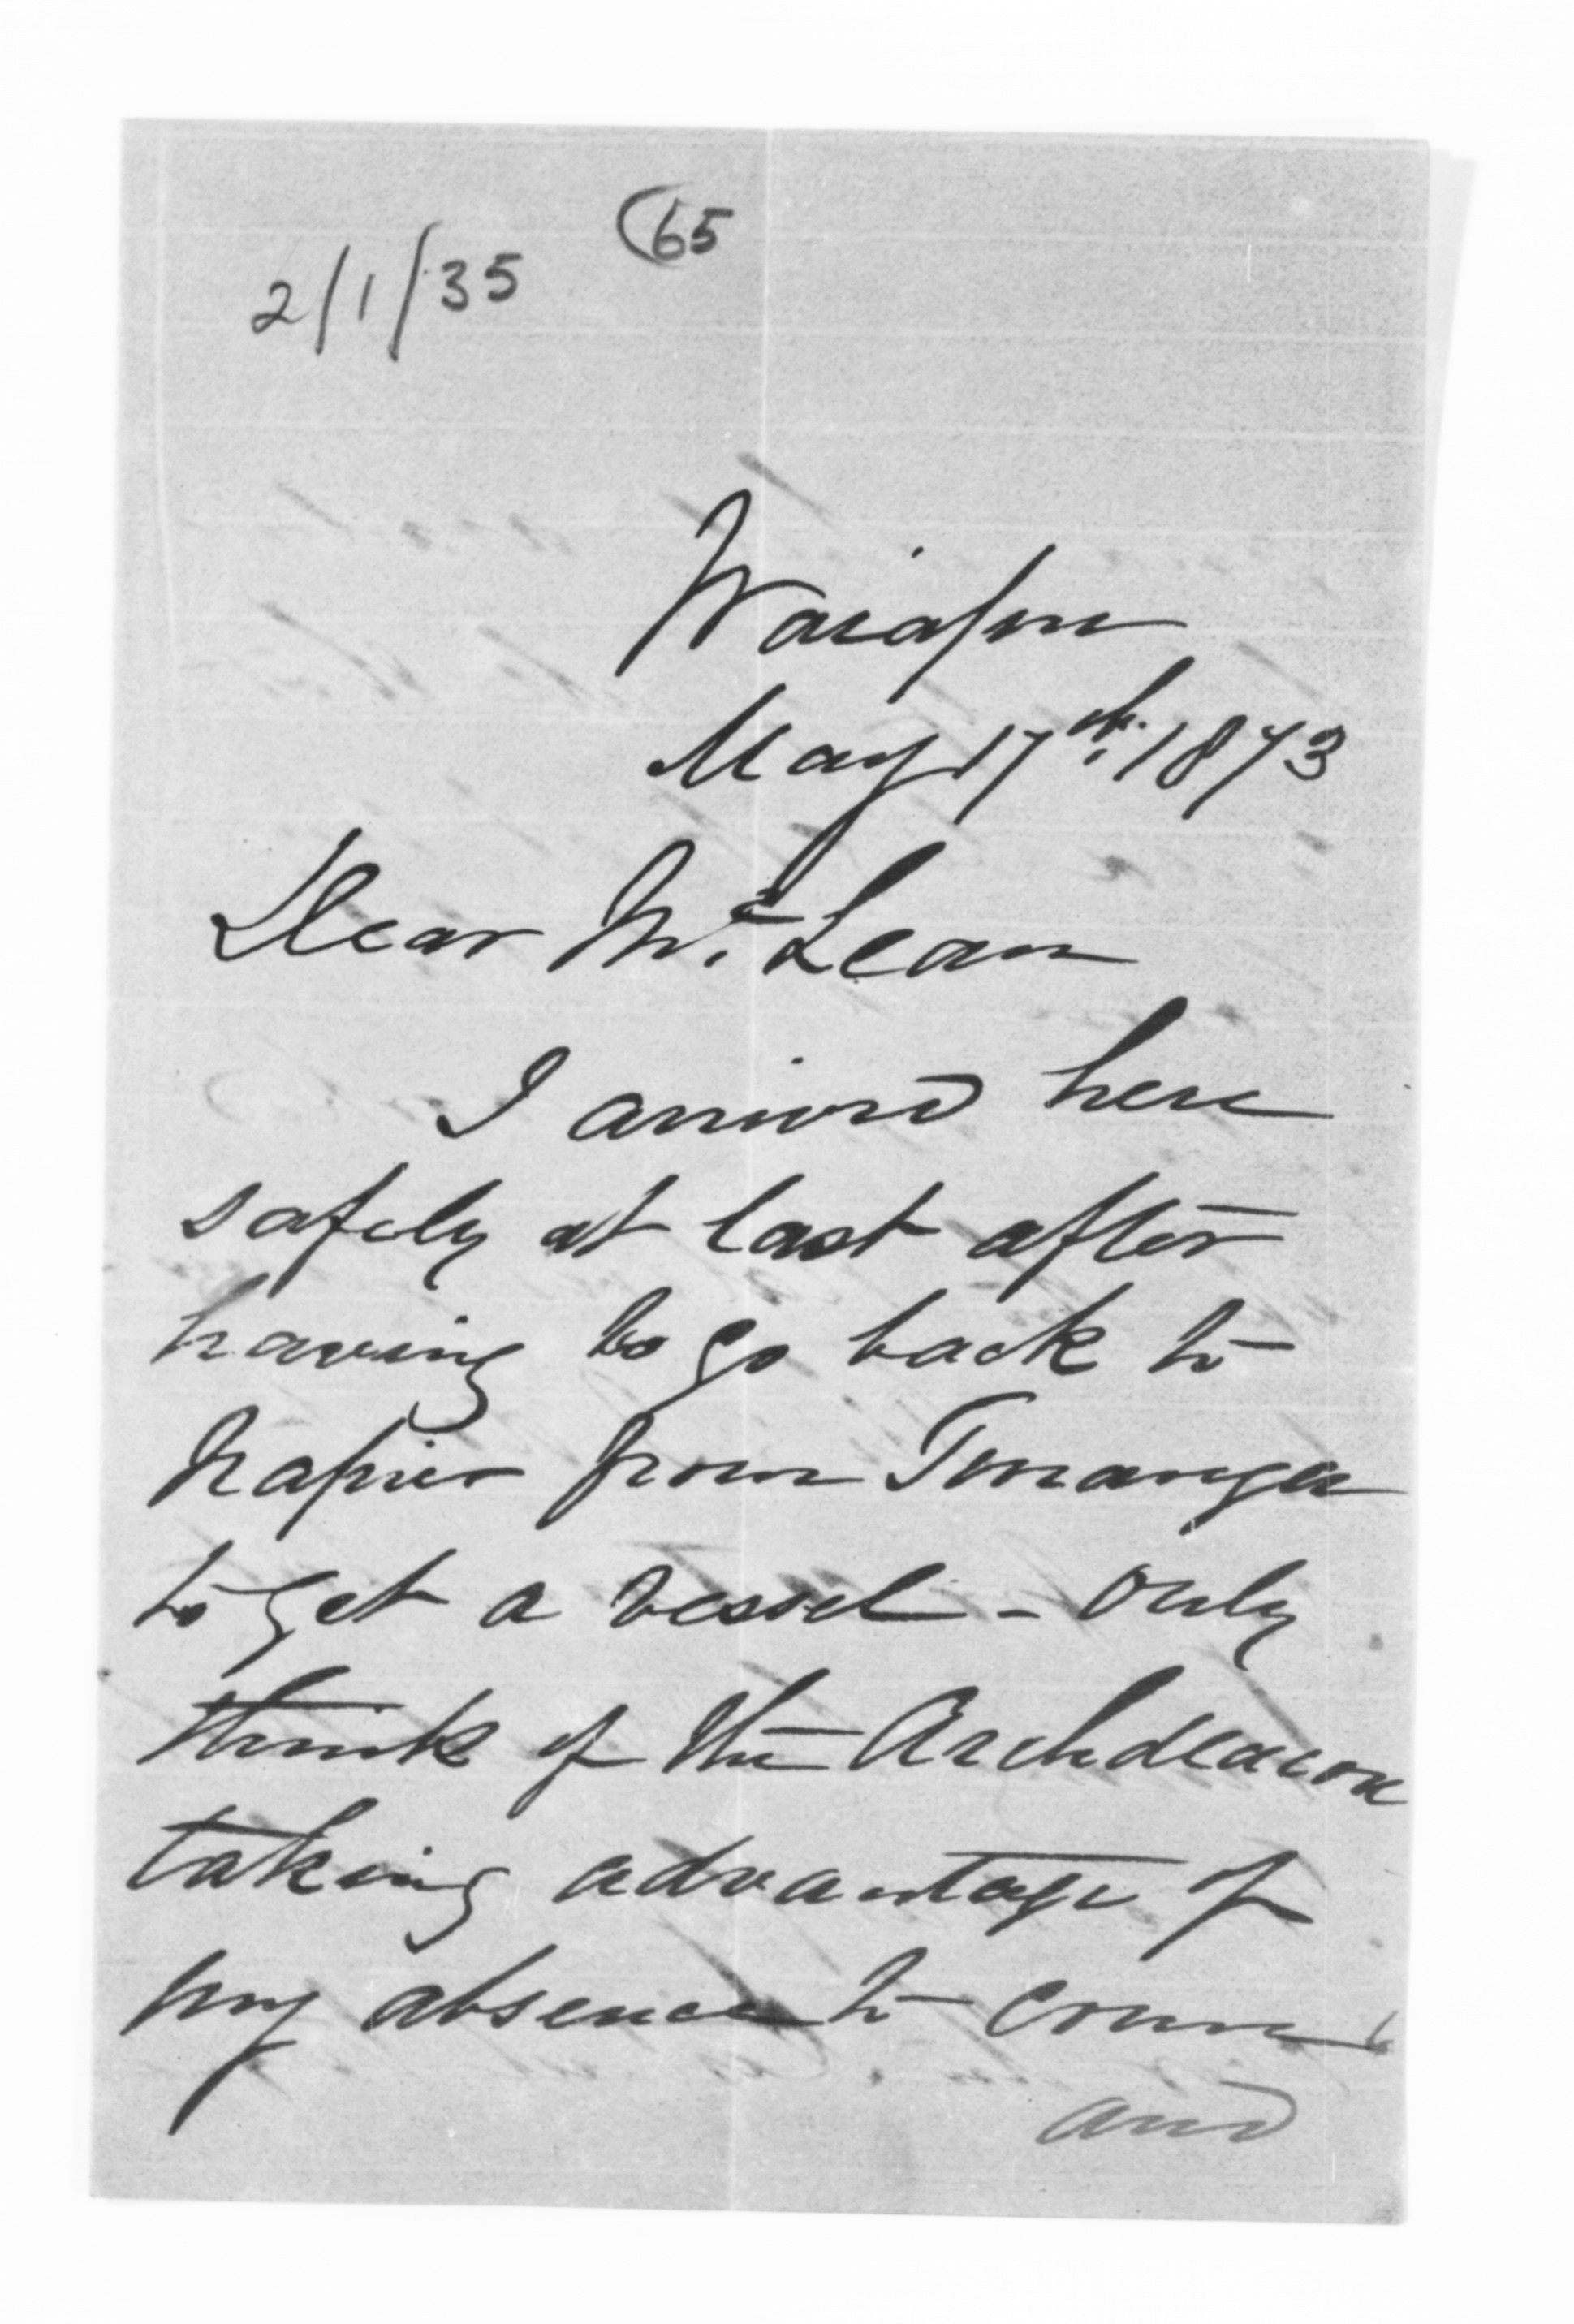 (65
2/1/35
Waiapu
May 17th. 1873
Dear McLean
I arrived here
safely at last after
having to go back to
Napier from Turanga
to get a vessel - only
think of the Archdeacon
taking advantage of
my absence to come
and